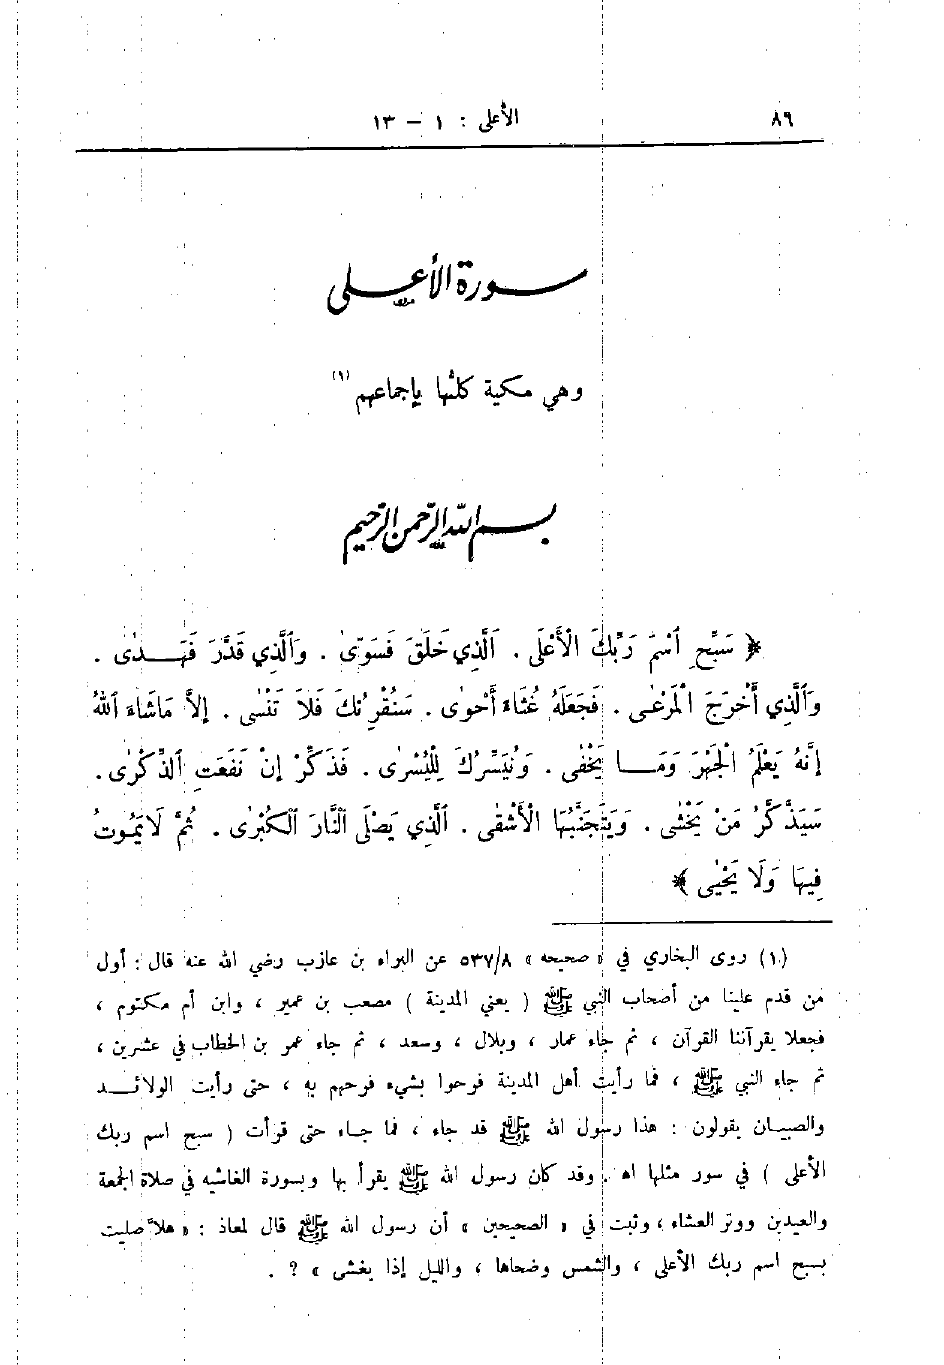 ٨٦ الأعلى : ١ – ١٣
سورة الأعلى
وهي مكية كلُّها بإجماعهم (١)
بسم الله الرحمن الرحيم
﴿ سَبِّحِ ٱسْمَ رَبِّكَ الْأَعْلَى . ٱلَّذِي خَلَقَ فَسَوَّىٰ . وَٱلَّذِي قَدَّرَ فَهَـدَىٰ .
وَٱلَّذِي أَخْرَجَ الْمَرْعَىٰ . فَجَعَلَهُ غُثَاءً أَحْوىٰ . سَنُقْرِئُكَ فَلَا تَنْسٰى . إلاَّ مَاشَاءَ ٱللهُ
إنَّهُ يَعْلَمُ الْجَهْرَ وَمَـا يَخْفٰى . وَنُيَسِّرُكَ لِلْيُسْرٰى . فَذَكِّرْ إنْ نَفَعَتِ ٱلذِّكْرٰى .
سَيَذَّكَّرُ مَنْ يَخْشٰى . وَيَتَجَنَّبُهَا الْأَشْقٰى . ٱلَّذِي يَصْلَى ٱلنَّارَ ٱلْكُبْرٰى . ثُمَّ لَا يَمُوتُ
فِيهَا وَلَا يَحْيٰى ﴾
(١) روى البخاري في « صحيحه » ٥٣٧/٨ عن البراء بن عازب رضي الله عنه قال : أول
من قدم علينا من أصحاب النبي ﷺ ( يعني المدينة ) مصعب بن عمير ، وابن أم مكتوم ،
فجعلا يقرآننا القرآن ، ثم جاء عمار ، وبلال ، وسعد ، ثم جاء عمر بن الخطاب في عشرين ،
ثم جاء النبي ﷺ ، فما رأيت أهل المدينة فرحوا بشيء فرحهم به ، حتى رأيت الولائـد
والصبيـان يقولون : هذا رسول الله ﷺ قد جاء ، فما جـاء حتى قرأت ( سبح اسم ربك
الأعلى ) في سور مثلها اه . وقد كان رسول الله ﷺ يقرأ بها وبسورة الغاشيه في صلاة الجمعة
والعيدين ووتر العشاء ، وثبت في « الصحيحين » أن رسول الله ﷺ قال لمعاذ : « هلاَّ صليت
بسبح اسم ربك الأعلى ، والشمس وضحاها ، والليل إذا يغشى » ؟ .